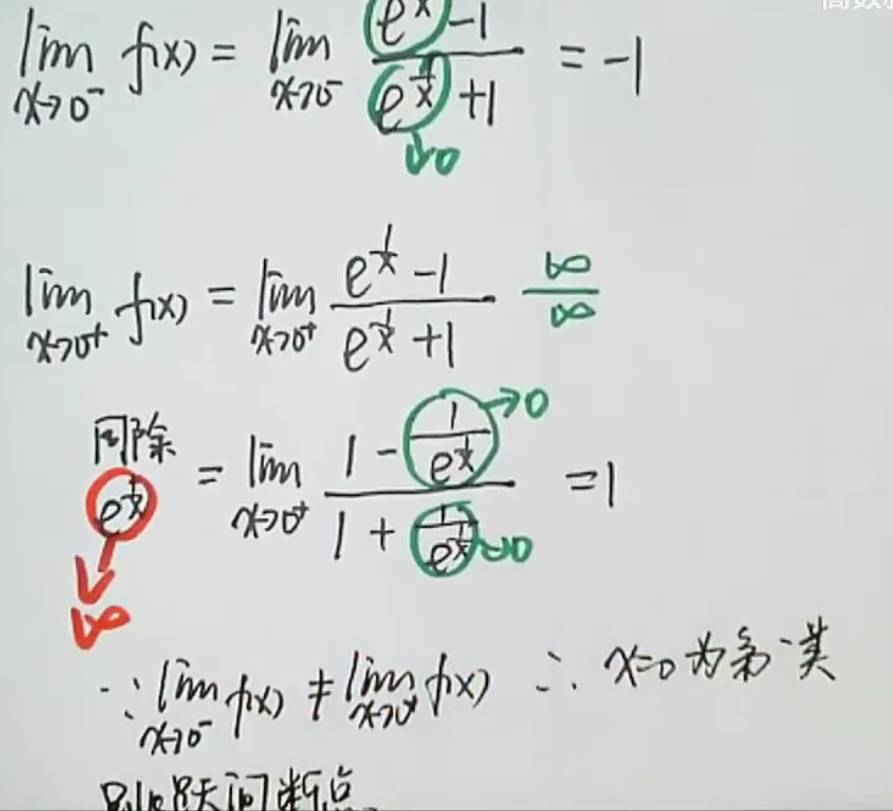 lim x→0⁻ f(x) = lim x→0⁻ (e^(1/x) -1)/(e^(1/x) +1) = -1
→0
lim x→0⁺ f(x) = lim x→0⁺ (e^(1/x) -1)/(e^(1/x) +1) ∞/∞
同除 e^(1/x) → ∞
= lim x→0⁺ (1 - 1/e^(1/x))/(1 + 1/e^(1/x)) = 1
→0
→0
∵ lim x→0⁻ f(x) ≠ lim x→0⁺ f(x) ∴ x=0 为第一类
跳跃间断点